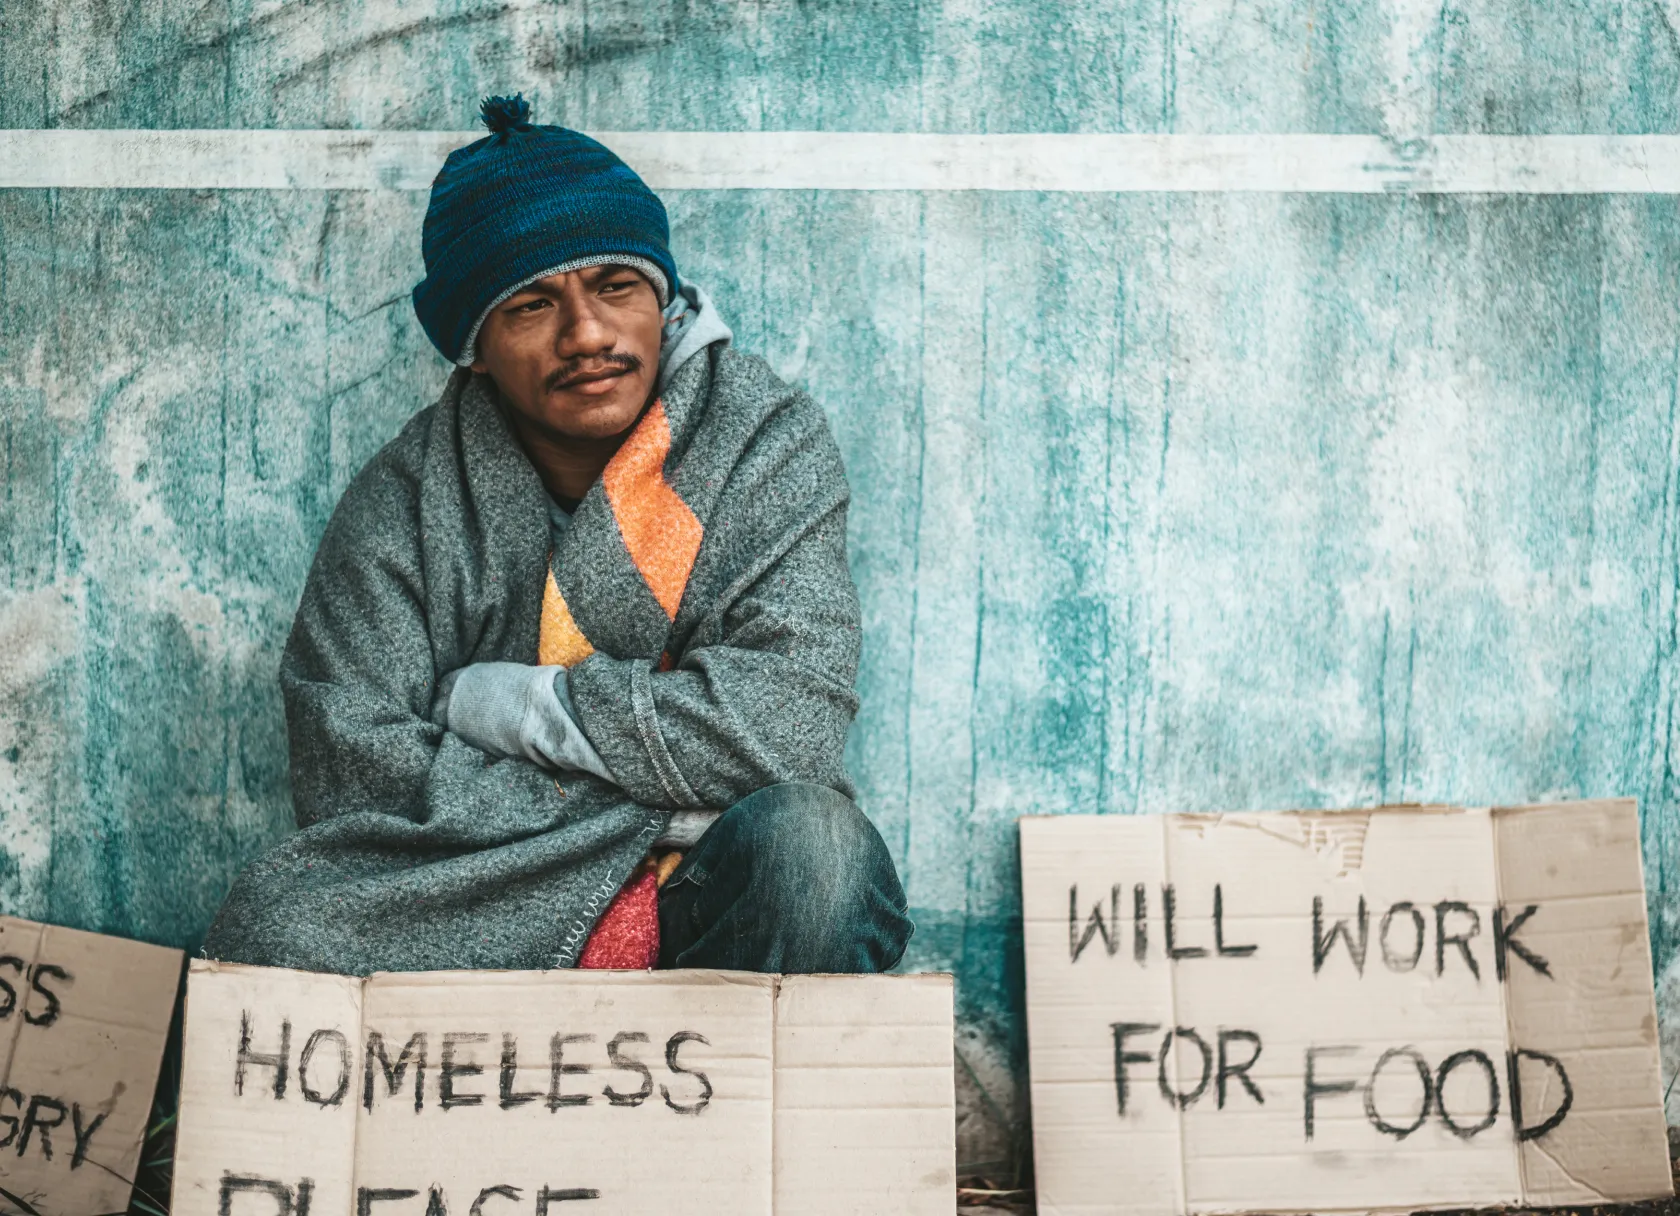 SS
GRY
HOMELESS
PLEASE
WILL WORK
FOR FOOD